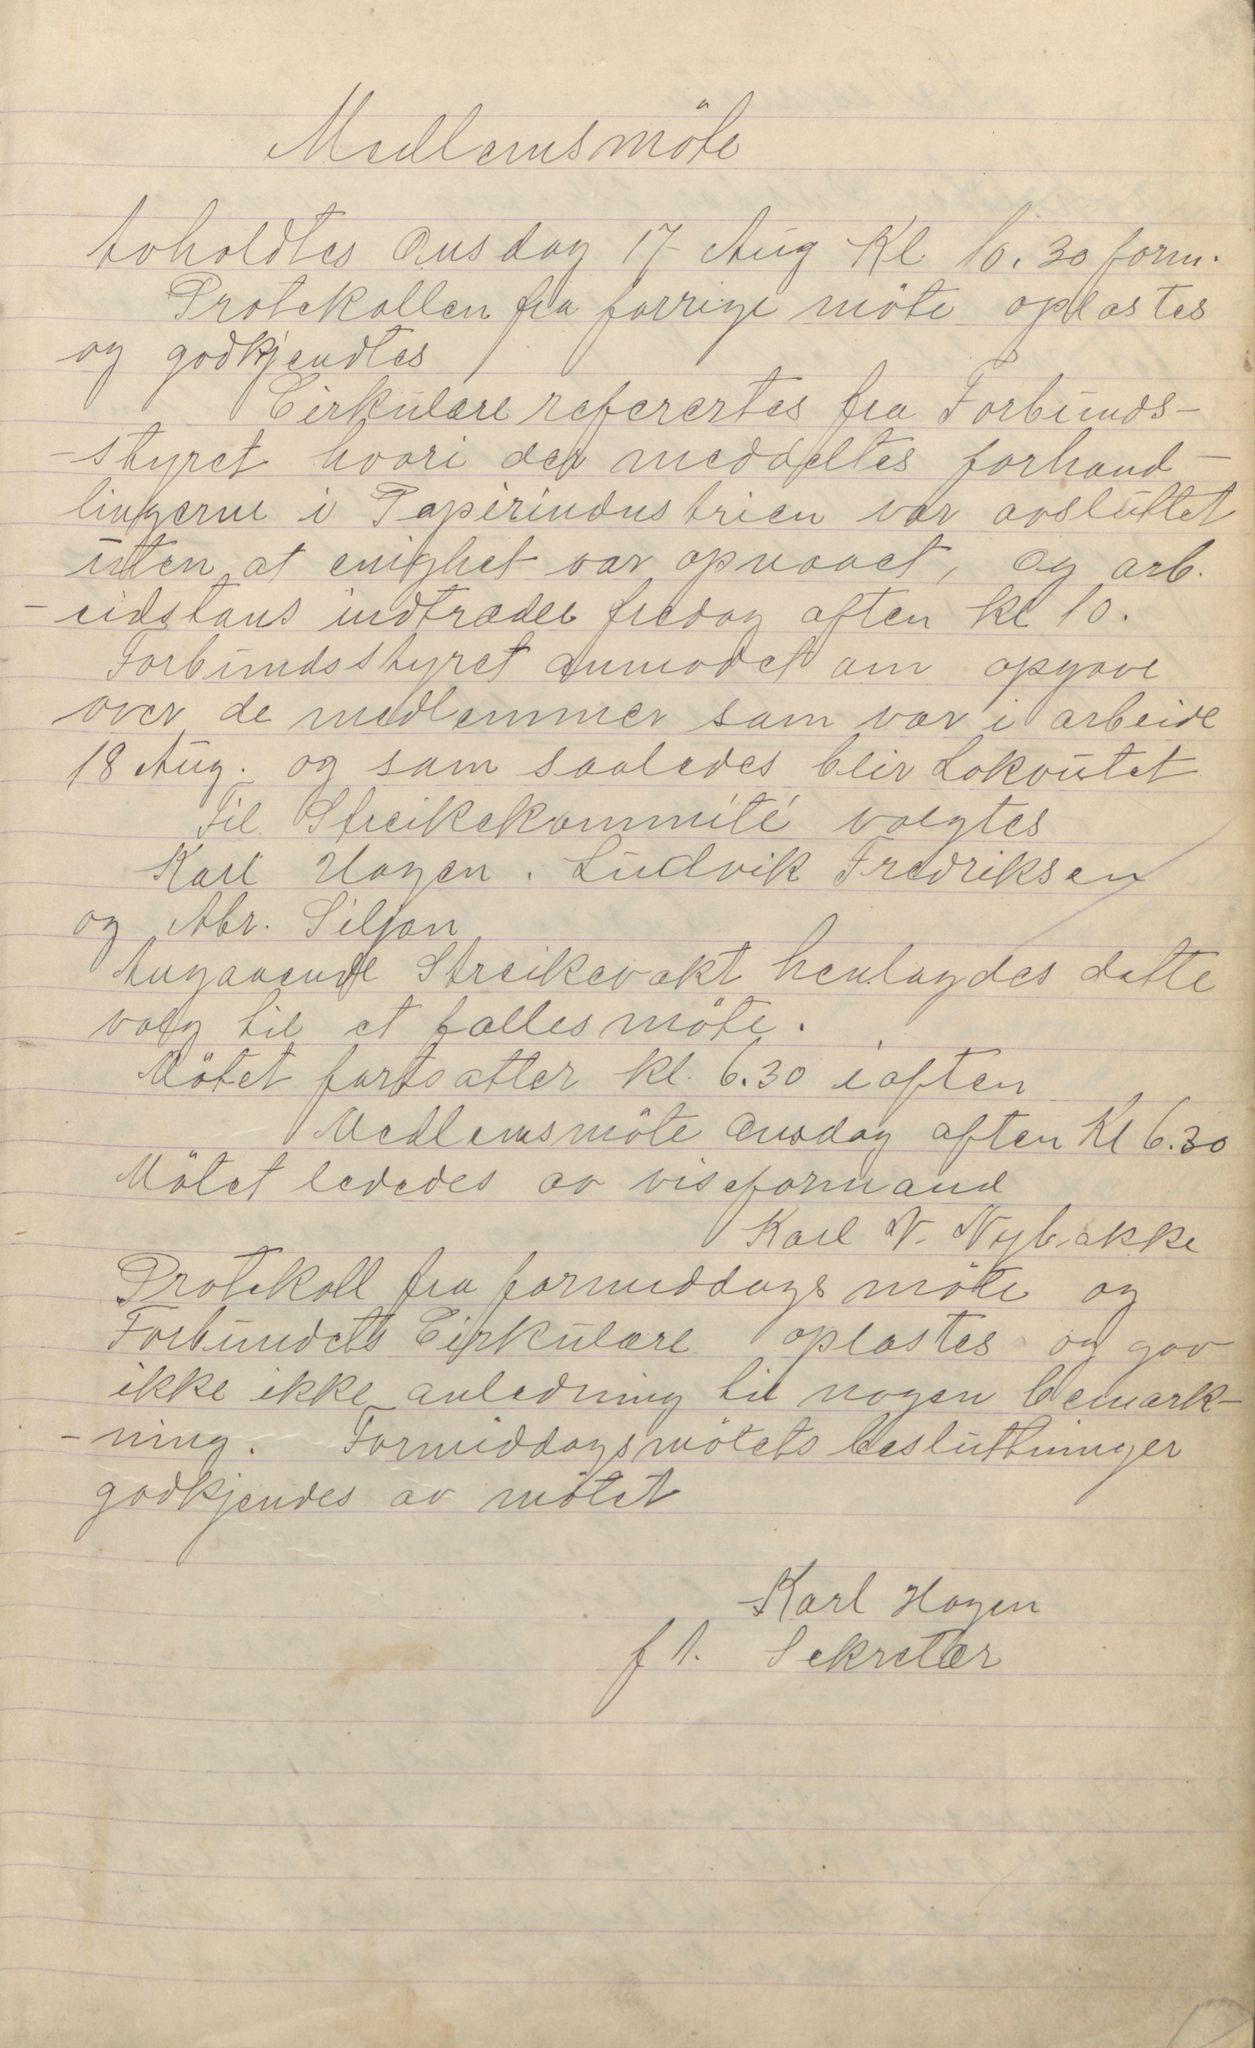 Medlemsmöte
Avholdtes Onsdag 17 Aug Kl 10.30 form.
Protokollen fra forrige möte oplæstes
og godkjendtes
Cirkulære referertes fra Forbunds-
-styret hvori der meddeltes forhand-
lingerne i Papirindustrien var avsluttet
uten at enighet var opnaaet, og arb.
-eidstans indtræder fredag aften kl 10.
Forbundsstyret anmodet om opgave
over de medlemmer som var i arbeide
18 Aug. og som saaledes blir Lokoutet
Til Streikekommité valgtes
Karl Hagen. Ludvik Fredriksen
og Abr. Siljan
Angaaende Streikevakt henlagdes dette
valg til et fællesmöte.
Mötet fortsætter kl. 6.30 i aften
Medlemsmöte Onsdag aften Kl 6.30
Mötet lededes av viseformand
Karl V. Nybakke
Protokoll fra formiddags möte og
Forbundets Cirkulære oplæstes og gav
ikke ikke anledning til nogen bemærk-
-ning. Formiddagsmötets beslutninger
godkjendes av mötet
Karl Hagen
f t. Sekretær